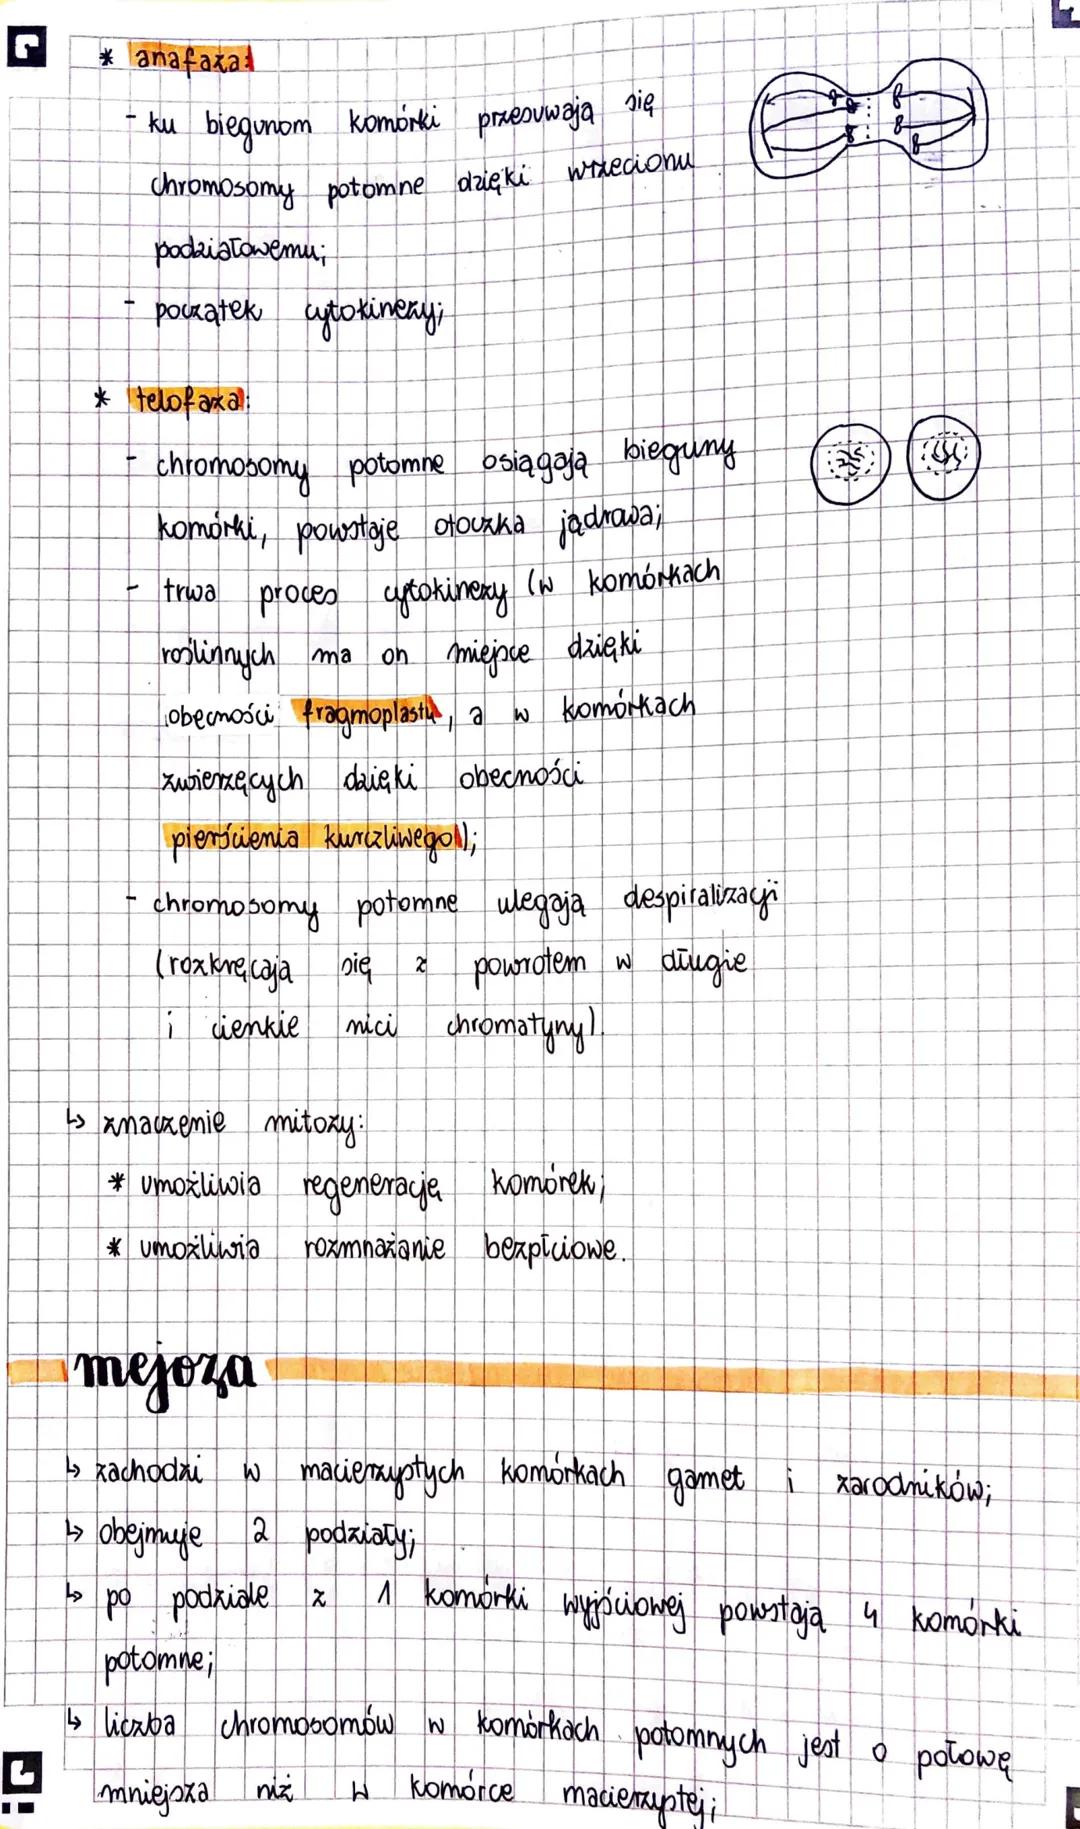 * anafaza:
- ku biegunom komórki przesuwają się
chromosomy potomne dzięki wrzecionu
podziałowemu;
- początek cytokinezy;
* telofaza:
- chromosomy potomne osiągają bieguny
komórki, powstaje otoczka jądrowa;
- trwa proces cytokinezy (w komórkach
roślinnych ma on miejsce dzięki
obecności fragmoplastu, a w komórkach
zwierzęcych dzięki obecności
pierścienia kurczliwego);
- chromosomy potomne ulegają despiralizacji
(rozkręcają się z powrotem w długie
i cienkie nici chromatyny).
↳ znaczenie mitozy:
* umożliwia regenerację komórek;
* umożliwia rozmnażanie bezpłciowe.
mejoza
↳ zachodzi w macierzystych komórkach gamet i zarodników;
↳ obejmuje 2 podziały;
↳ po podziale z 1 komórki wyjściowej powstają 4 komórki
potomne;
↳ liczba chromosomów w komórkach potomnych jest o połowę
mniejsza niż w komórce macierzystej;